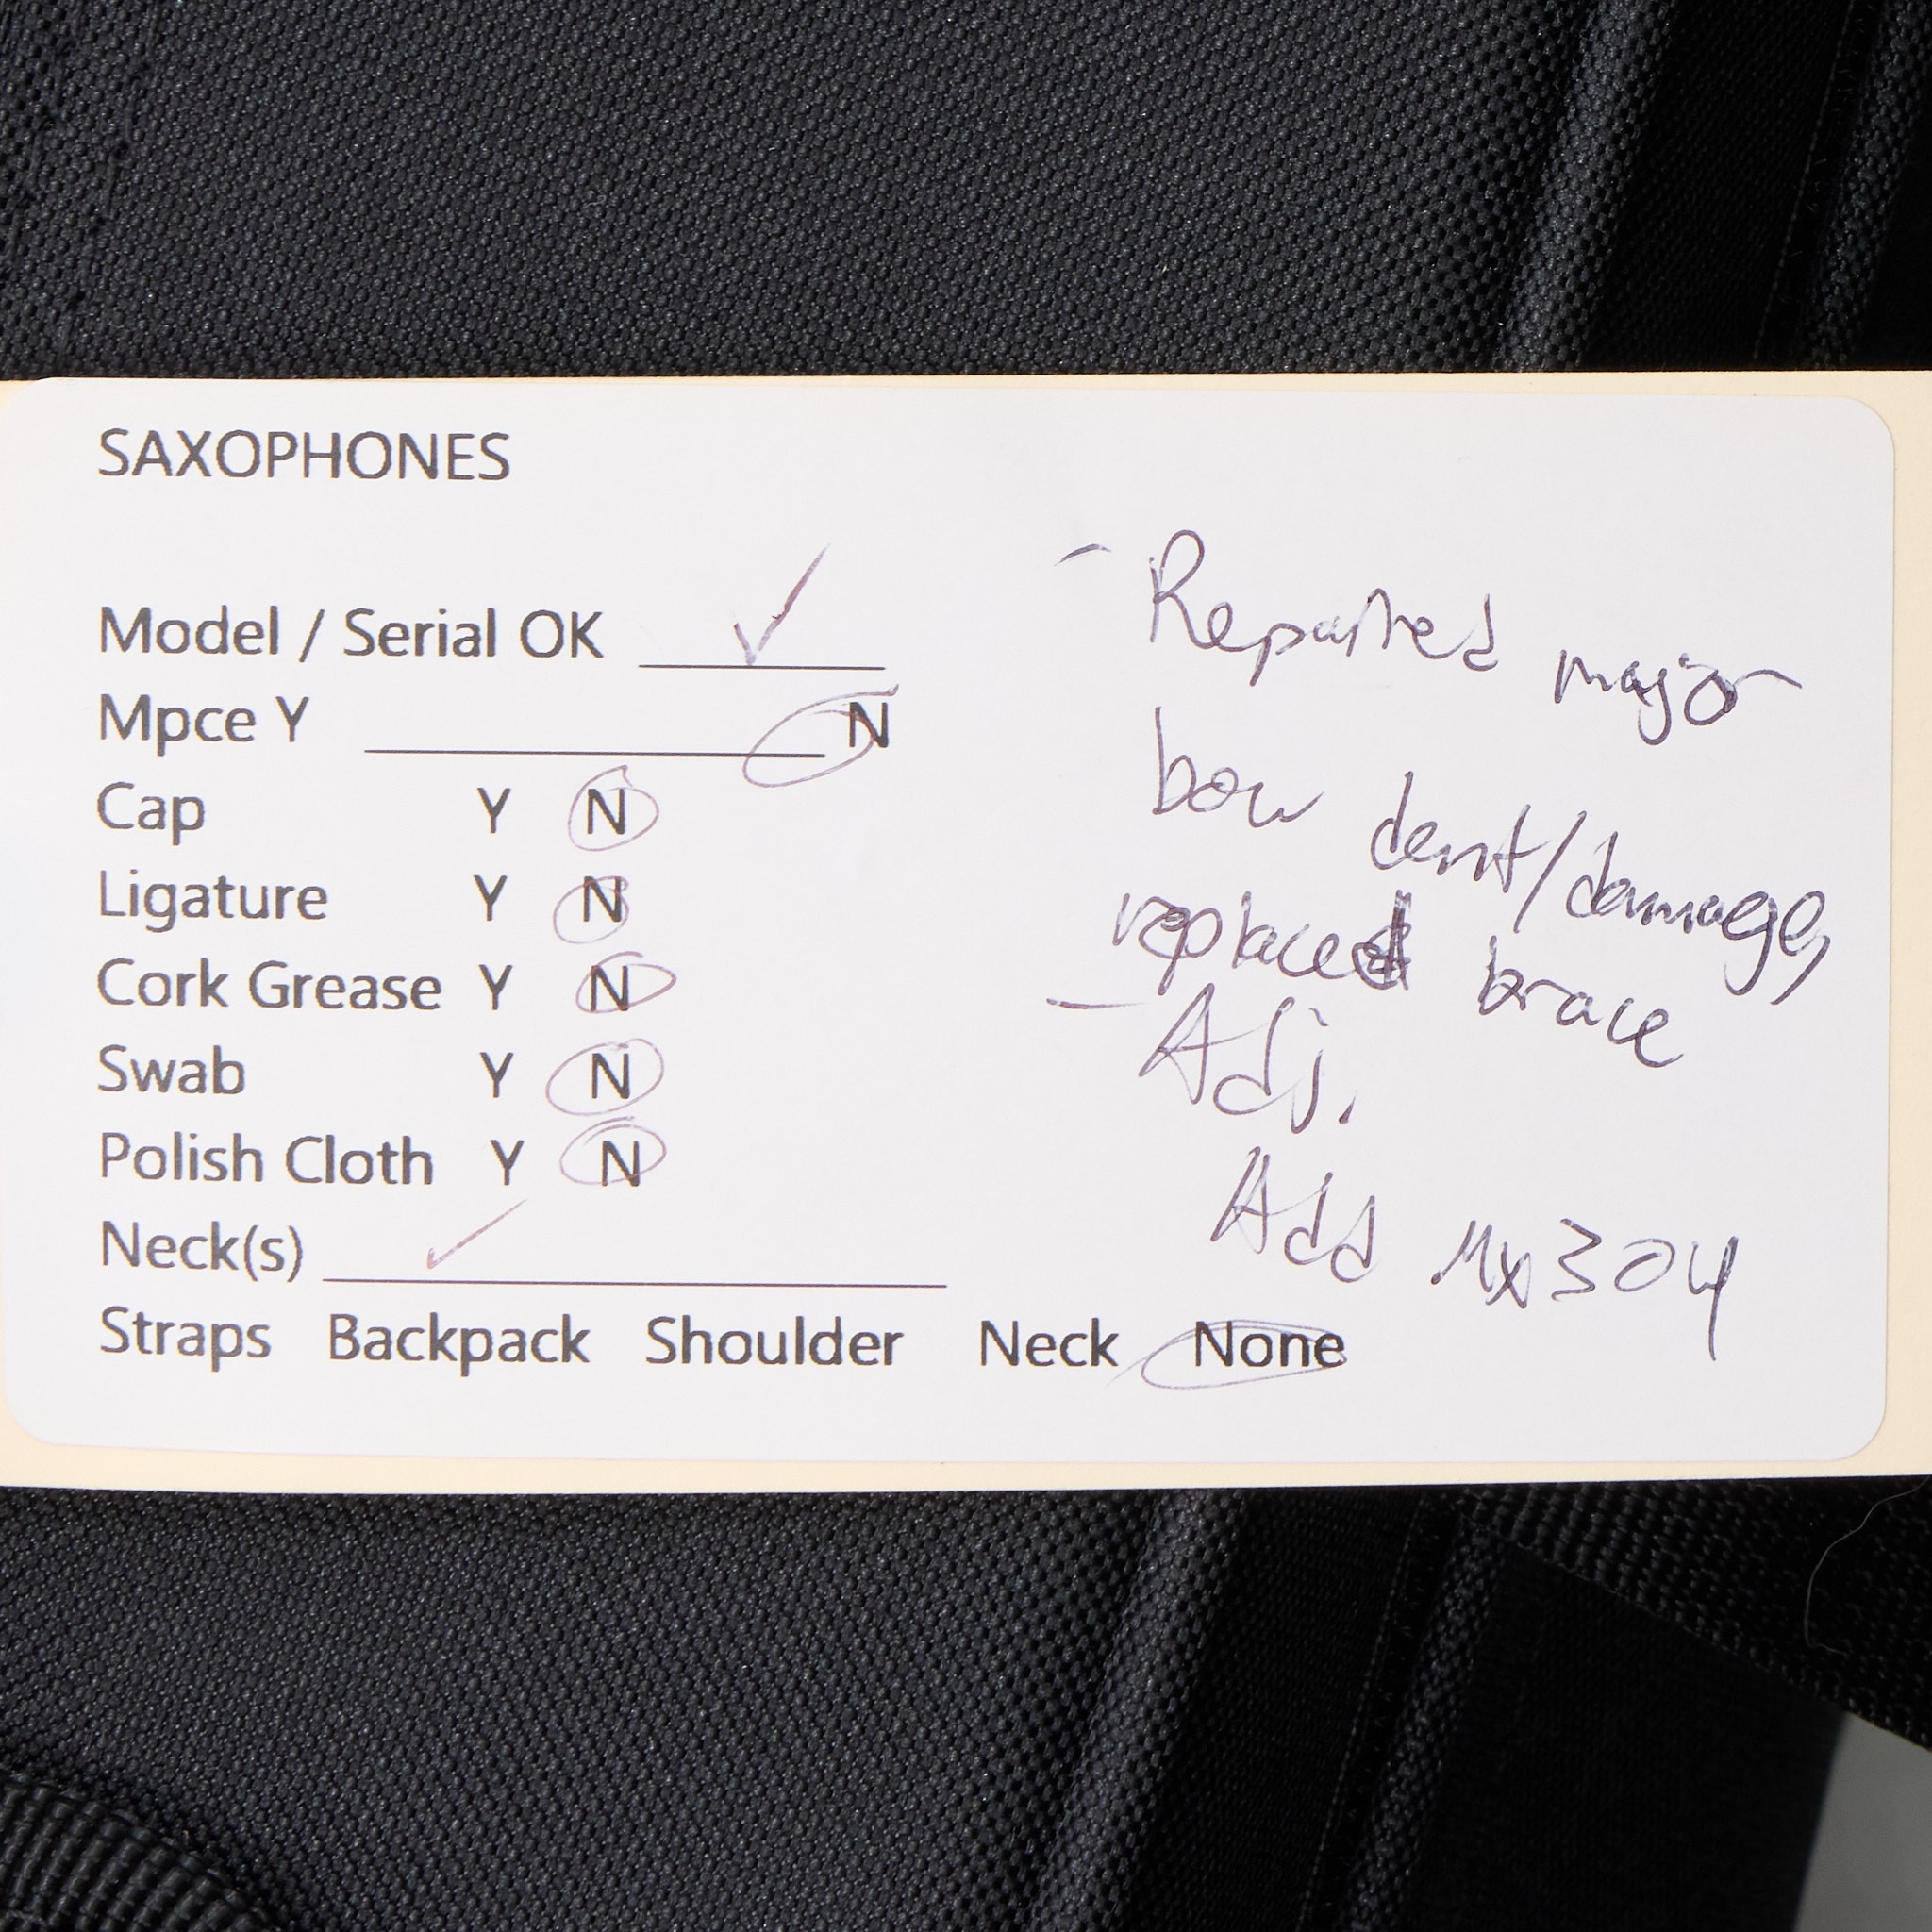 SAXOPHONES
Model / Serial OK ✓
Mpce Y N
Cap Y N
Ligature Y N
Cork Grease Y N
Swab Y N
Polish Cloth Y N
Neck(s) ✓
Straps Backpack Shoulder Neck None
- Repaired major
bow dent/damage,
replaced brace
- Adj.
Add Mx304